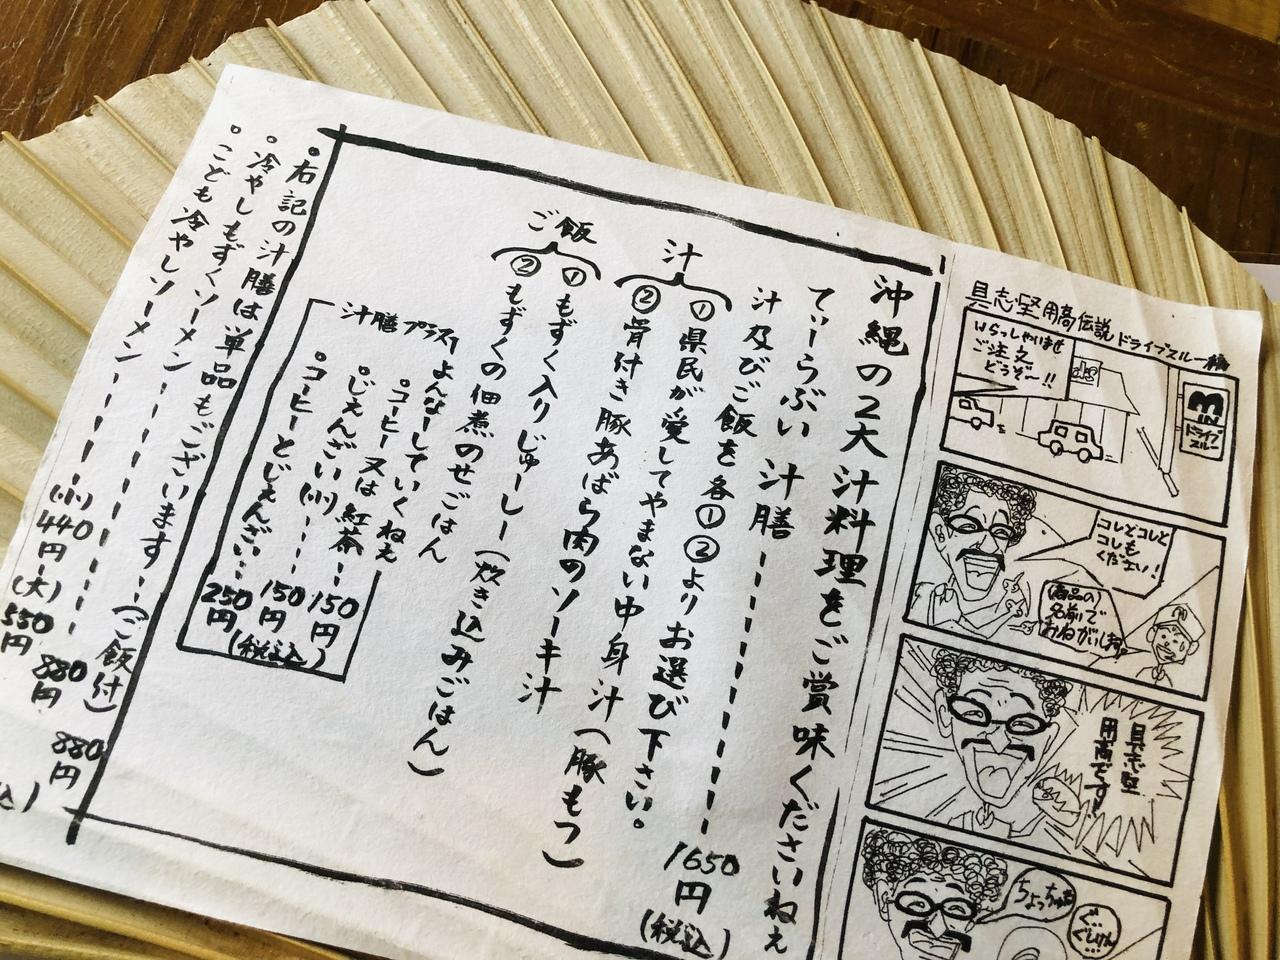 具志堅用高伝説ドライブスルー編
いらっしゃいませ
ご注文
どうぞ〜!!
M
IN
ドライブ
スルー
コレとコレと
コレも
ください!
(商品の)
名前で
おねがいします。
具志堅
用高です!
ちょっちゅね
ぐ…
ぐしけん…
沖縄の2大汁料理をご賞味くださいねぇ
てぃーらぶい 汁膳 1650円(税込)
汁及びご飯を各①②よりお選び下さい。
汁
①県民が愛してやまない中身汁(豚もつ)
②骨付き豚あばら肉のソーキ汁
ご飯
①もずく入りじゅーしー(炊き込みごはん)
②もずくの佃煮のせごはん
汁膳プラス1よんなーしていくねぇ
・コーヒー又は紅茶…150円
・じぇんざい(小)…150円
・コーヒーとじぇんざい…250円
(税込)
・右記の汁膳は単品もございます…(ご飯付)880円
・冷やしもずくソーメン 880円
・こども冷やしソーメン (小)440円(大)550円
込)